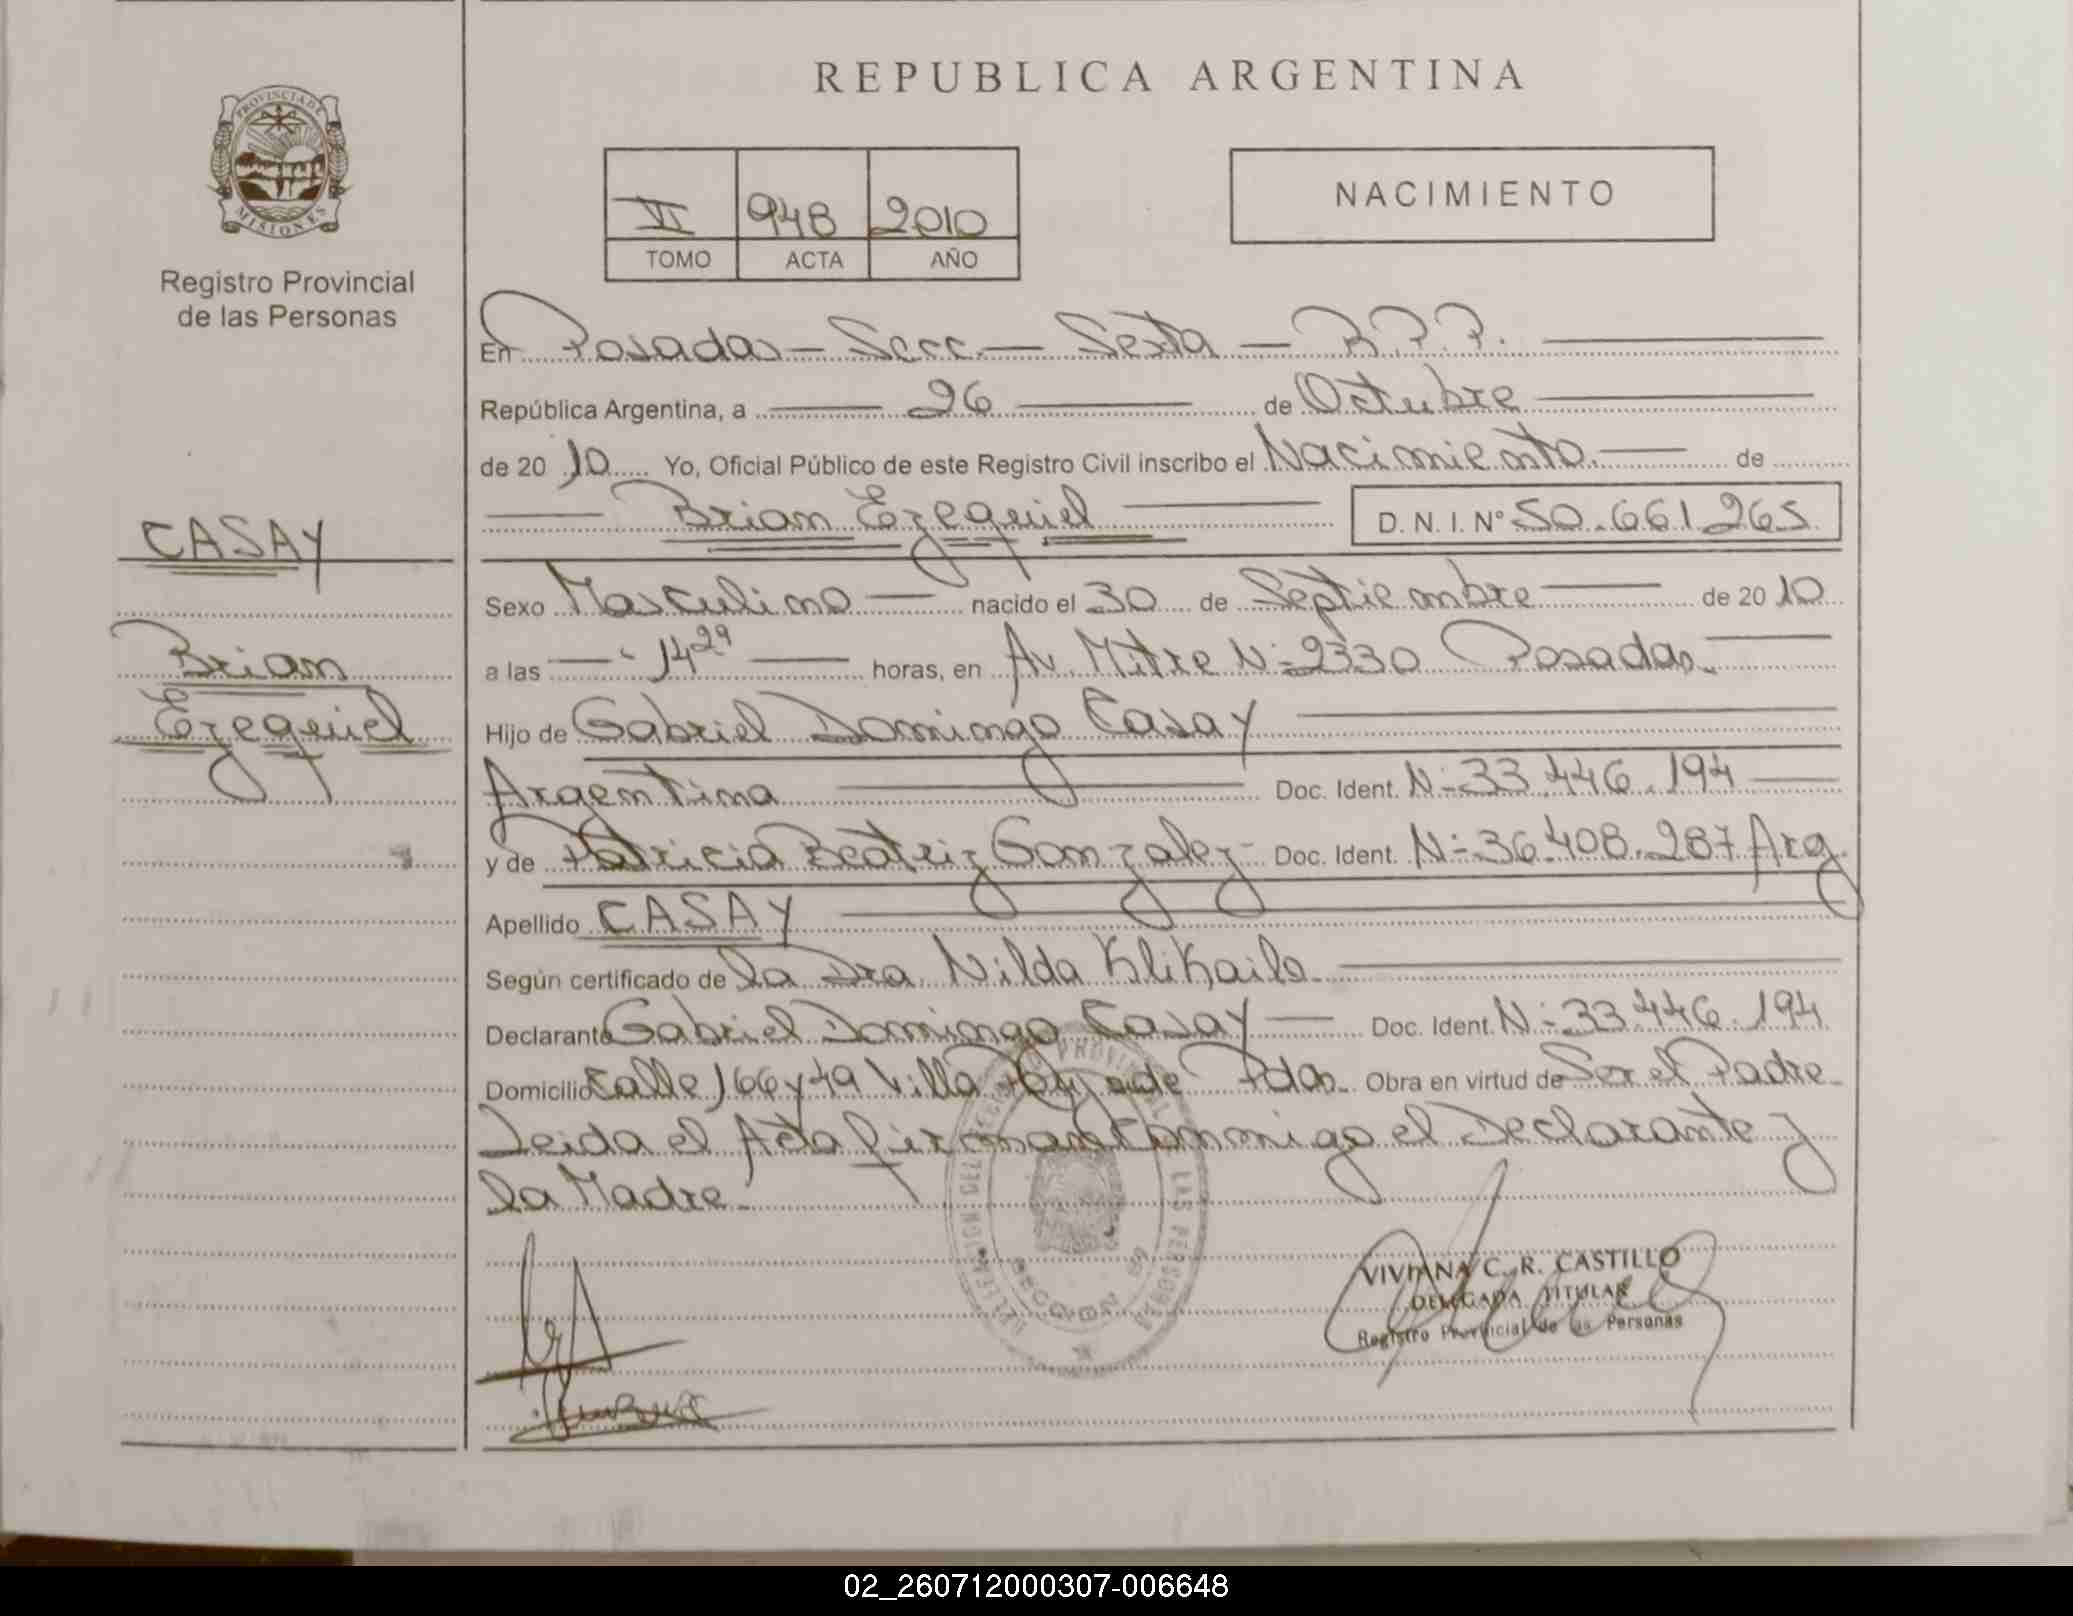 REPUBLICA ARGENTINA
PROVINCIA DE
MISIONES
Registro Provincial
de las Personas
VI 948 2010
TOMO ACTA AÑO
NACIMIENTO
CASAY
Brian
Ezequiel
En Posadas - Secc. - Sexta - R.P.P.
República Argentina, a 26 de Octubre
de 2010 Yo, Oficial Público de este Registro Civil inscribo el Nacimiento de
Brian Ezequiel D.N.I. Nº 50.661.265
Sexo Masculino nacido el 30 de Septiembre de 2010
a las 14 29 horas, en Av. Mitre Nº 2330 Posadas
Hijo de Gabriel Domingo Casay
Argentina Doc. Ident. Nº 33.446.194
y de Patricia Beatriz Gonzalez Doc. Ident. Nº 36.408.287 Arg.
Apellido CASAY
Según certificado de la Dra Nilda
Declarante Gabriel Domingo Casay Doc. Ident. Nº 33.446.194
Domicilio Calle 166 y 49 Villa Pdas. Obra en virtud de Ser el Padre
Leida el Acta firman Conmigo el Declarante y
la Madre
VIVIANA C. R. CASTILLO
DELEGADA TITULAR
Registro Provincial de las Personas
02_260712000307-006648